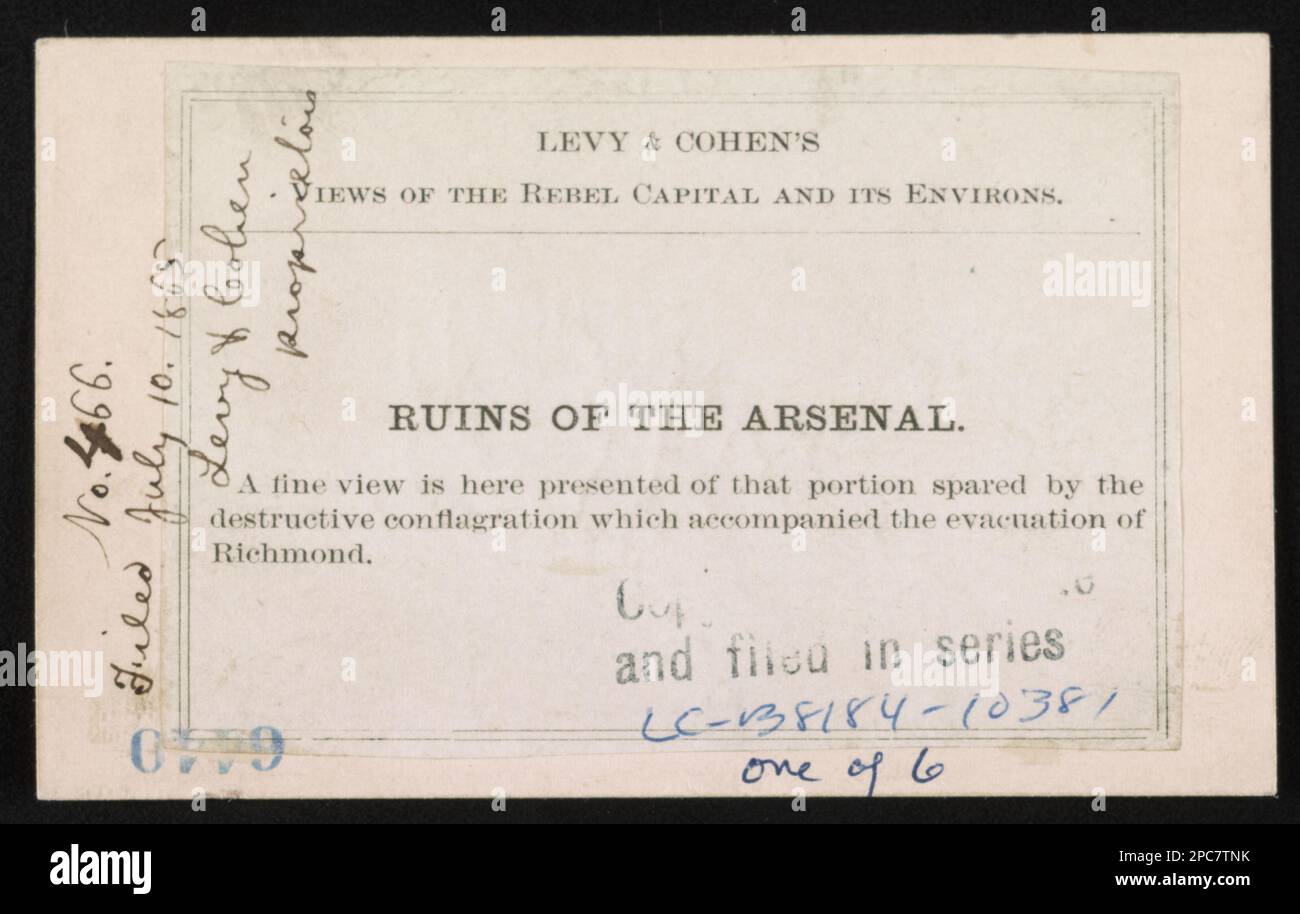 LEVY & COHEN'S
VIEWS OF THE REBEL CAPITAL AND ITS ENVIRONS.
RUINS OF THE ARSENAL.
A fine view is here presented of that portion spared by the
destructive conflagration which accompanied the evacuation of
Richmond.
No. 466.
Filed July 10. 1865
Levy & Cohen
proprietors
and filed in series
LC-B8184-10381
one of 6
alamy
Image ID: 2PC7TNK
www.alamy.com